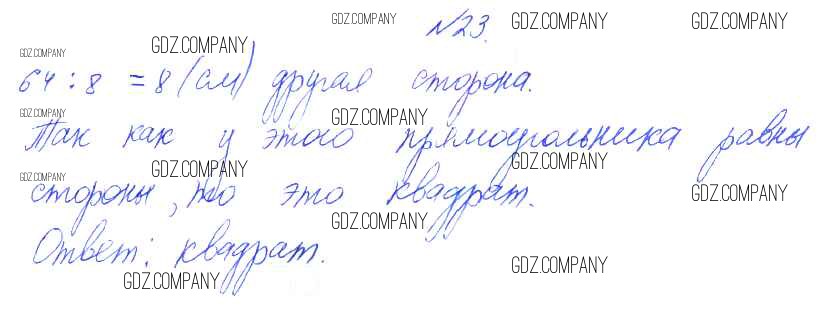 №23.
64 : 8 = 8 (см) другая сторона.
Так как у этого прямоугольника равны
стороны, то это квадрат.
Ответ: квадрат.
GDZ.COMPANY
GDZ.COMPANY
GDZ.COMPANY
GDZ.COMPANY
GDZ.COMPANY
GDZ.COMPANY
GDZ.COMPANY
GDZ.COMPANY
GDZ.COMPANY
GDZ.COMPANY
GDZ.COMPANY
GDZ.COMPANY
GDZ.COMPANY
GDZ.COMPANY